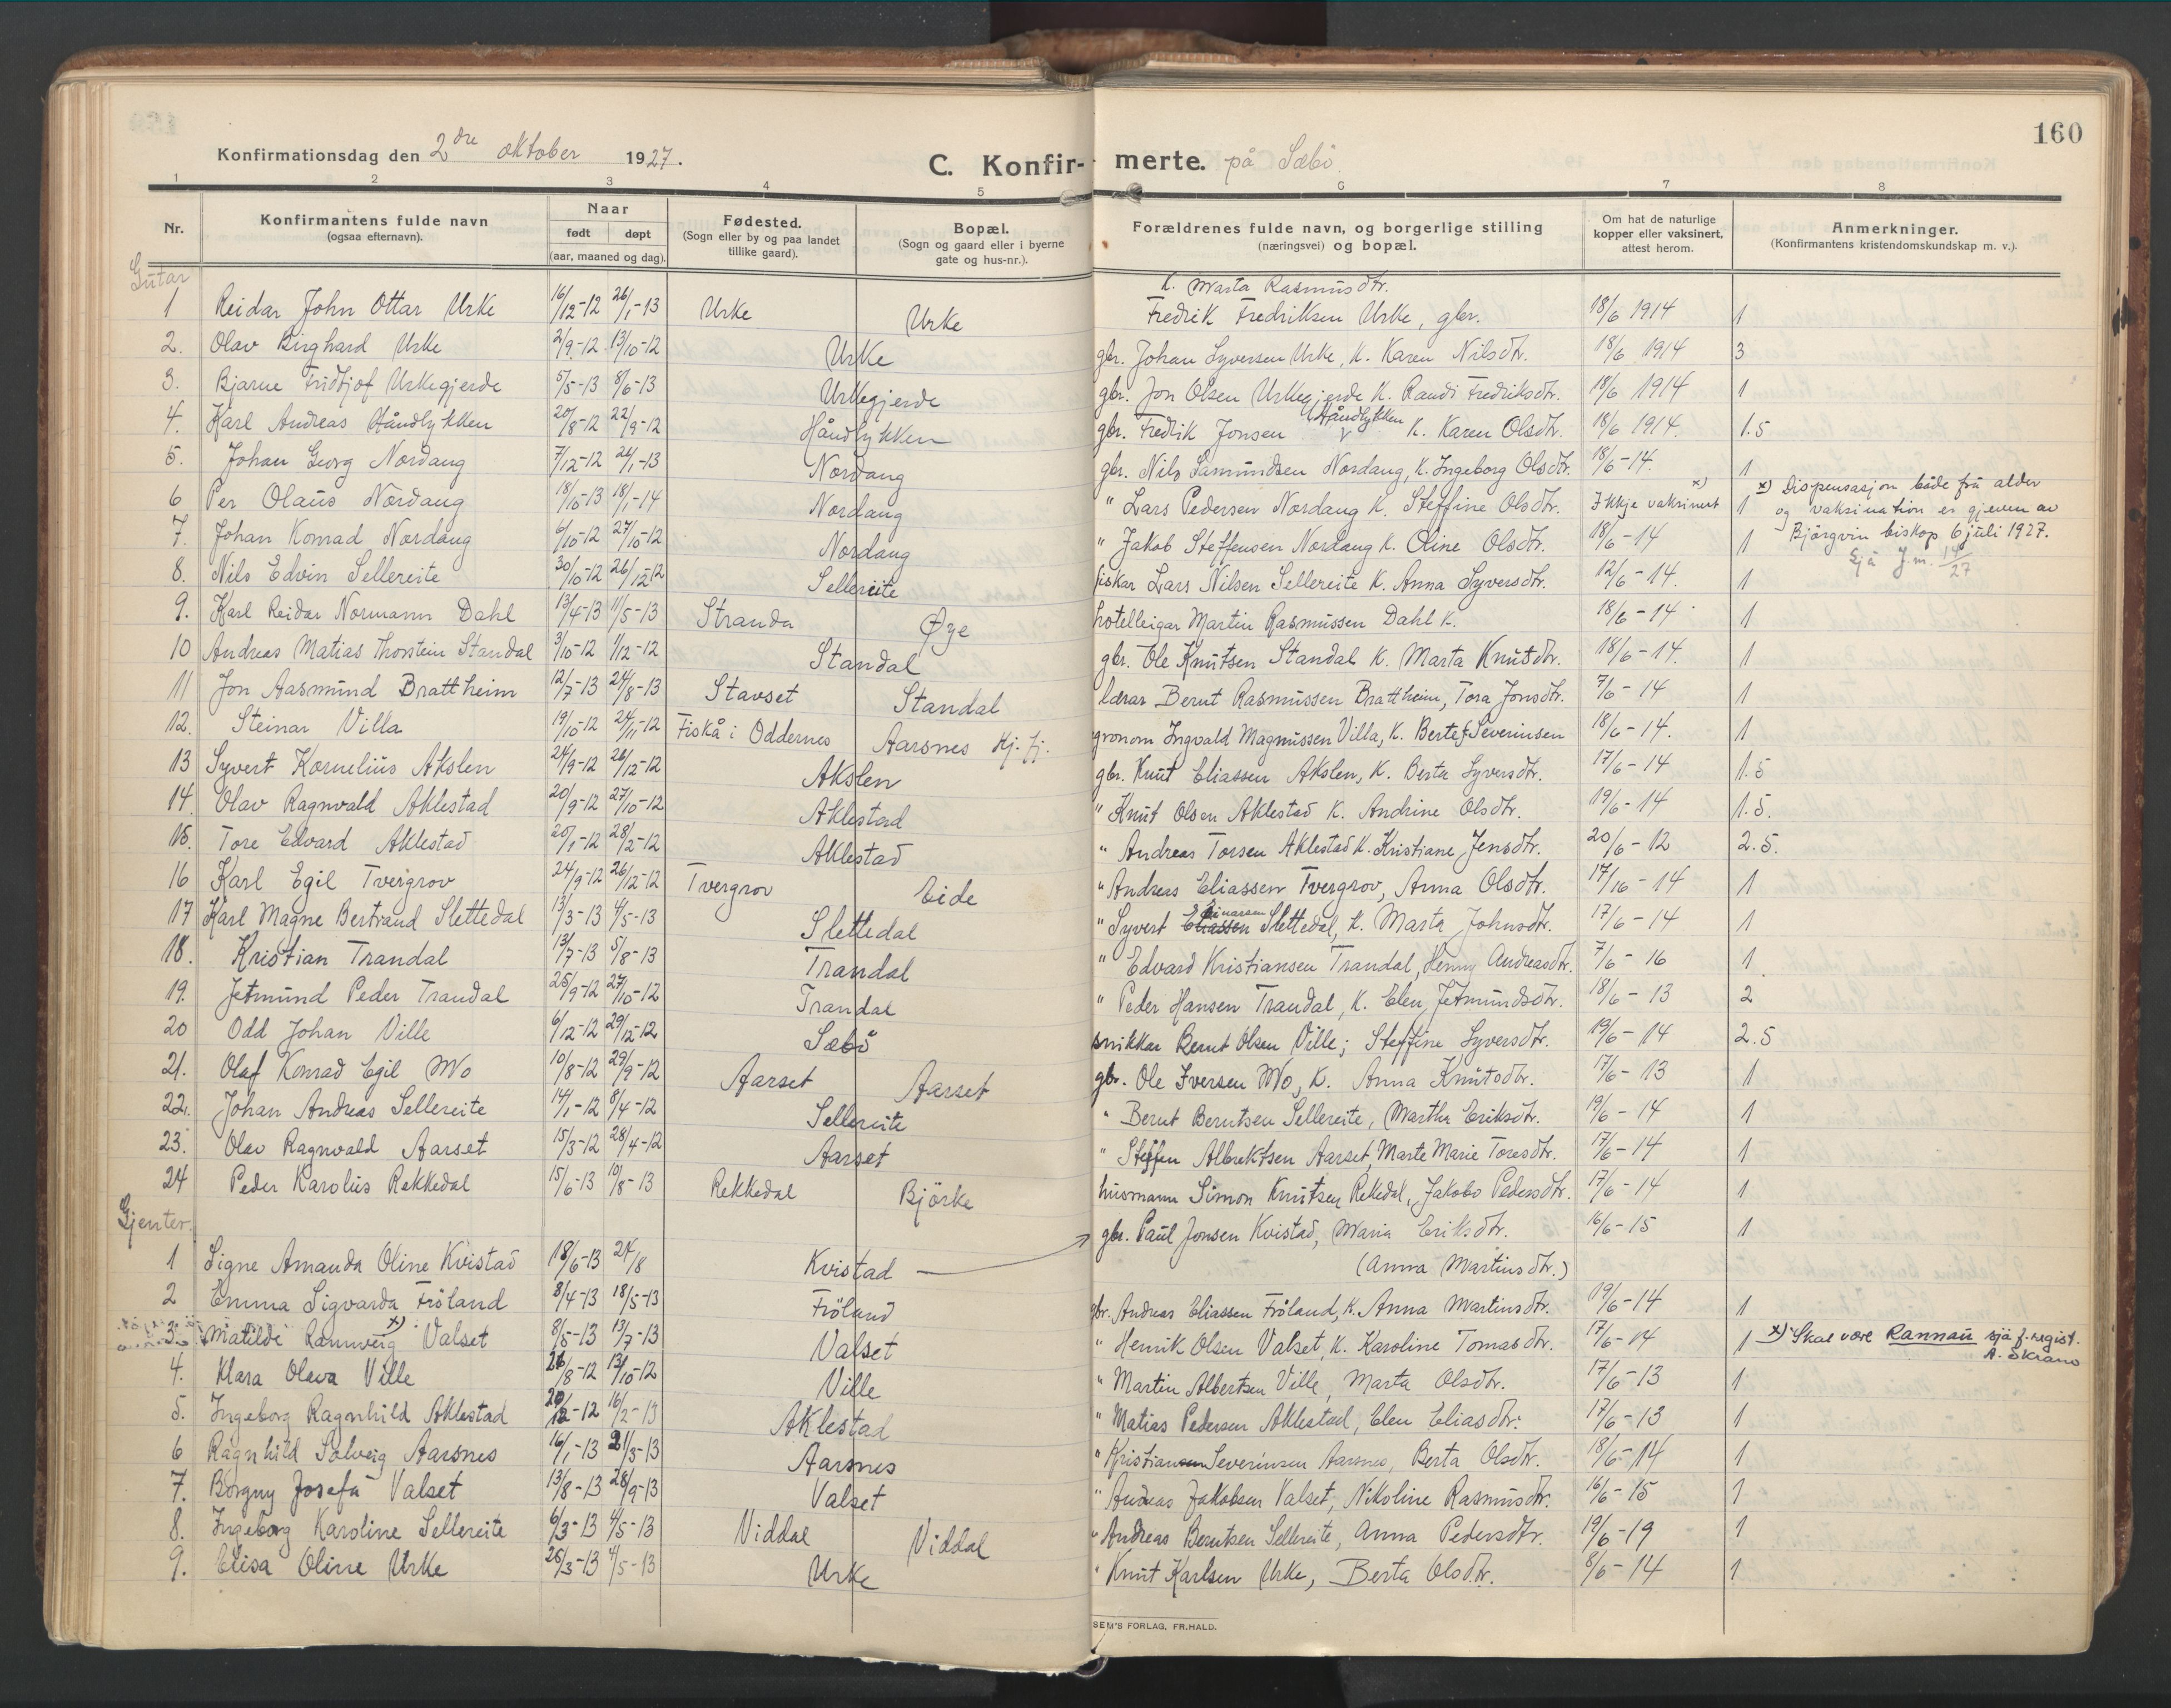 160
Konfirmationsdag den 2dre oktober 1927.
C. Konfir- merte. på Sæbö.
1 2 3 4 5 6 7 8
Nr. Konfirmantens fulde navn (ogsaa efternavn). Naar født døpt (aar, maaned og dag). Fødested. (Sogn eller by og paa landet tillike gaard). Bopæl. (Sogn og gaard eller i byerne gate og hus-nr.). Forældrenes fulde navn, og borgerlige stilling (næringsvei) og bopæl. Om hat de naturlige kopper eller vaksinert, attest herom. Anmerkninger. (Konfirmantens kristendomskundskap m. v.).
Gutar
K. Marta Rasmusdtr.
1 Reidar John Ottar Urke 16/12-12 26/1-13 Urke Urke Fredrik Fredriksen Urke, gbr. 18/6 1914 1
2. Olav Birghard Urke 2/9-12 13/10-12 Urke gbr. Johan Syversen Urke, K. Karen Nilsdtr. 18/6 1914 3
3. Bjarne Fridtjof Urkegjerde 5/5-13 8/6-13 Urkegjerde gbr. Jon Olsen Urkegjerde K. Randi Fredriksdtr. 18/6 1914 1
4. Karl Andreas Håndlykken 20/8-12 22/9-12 Håndlykken gbr. Fredrik Jonsen Håndlykken K. Karen Olsdtr. 18/6 1914. 1.5
5. Johan Georg Nordang 7/12-12 24/1-13 Nordang gbr. Nils Samundsen Nordang, K. Ingeborg Olsdtr. 18/6-14. 1
6 Per Olaus Nordang 18/10-13 18/1-14 Nordang " Lars Pedersen Nordang K. Steffine Olsdtr. Ikkje vaksinert x) 1 x) Dispensasjon både frå alder
og vaksination er gjeven av
7. Johan Konrad Nordang 6/10-12 27/10-12 Nordang " Jakob Steffensen Nordang K. Oline Olsdtr. 18/6-14 1 Bjørgvin biskop 6 juli 1927.
Sjå J.nr. 14/27
8. Nils Edvin Sellereite 30/10-12 26/12-12 Sellereite fiskar Lars Nilsen Sellereite K. Anna Syversdtr. 12/6-14. 1
9. Karl Reidar Normann Dahl 13/4-13 11/5-13 Stranda Øye hotelleigar Martin Rasmussen Dahl K. 18/6-14 1
10 Andreas Matias Thorstein Standal 3/10-12 1/12-12 Standal gbr. Ole Knutsen Standal K. Marta Knutsdtr. 18/6-14. 1
11 Jon Aasmund Brattheim 12/7-13 24/8-13 Stavset Standal lærar Bernt Rasmussen Brattheim, Tora Jonsdtr. 7/6-14 1
12. Steinar Villa 19/10-12 24/11-12 Fiskå i Oddernes Aarsnes Hj.fj. gronom Ingvald Magnussen Villa, K. Berte f. Severinsen 18/6-14. 1
13 Syvert Kornelius Akslen 24/9-12 26/12-12 Akslen gbr. Knut Eliassen Akslen, K. Berta Syversdtr. 17/6-14 1.5
14. Olav Ragnvald Aklestad 20/9-12 27/10-12 Aklestad " Knut Olsen Aklestad K. Andrine Olsdtr. 19/6-14 1.5.
15. Tore Edvard Aklestad 20/1-12 28/2-12 Aklestad " Andreas Torsen Aklestad K. Kristiane Jensdtr. 20/6-12 2.5.
16 Karl Egil Tvergrov 24/9-12 26/12-12 Tvergrov Eide " Andreas Eliassen Tvergrov, Anna Olsdtr. 17/16-14 1
17 Karl Magne Bertrand Slettedal 13/3-13 4/5-13 Slettedal " Syvert Eliassen Einarsen Slettedal, K. Marta Johnsdtr. 17/6-14 1
18. Kristian Trandal 13/7-13 5/8-13 Trandal " Edvard Kristiansen Trandal, Henny Andreasdtr. 7/6-16 1
19. Jetmund Peder Trandal 25/9-12 27/10-12 Trandal " Peder Hansen Trandal, K. Elen Jetmundsdtr. 18/6-13 2
20 Odd Johan Ville 6/12-12 29/12-12 Sæbö snikkar Bernt Olsen Ville; Steffine Syversdtr. 19/6-14 2.5
21. Olaf Konrad Egil Mo 10/8-12 29/9-12 Aarset Aarset gbr. Ole Iversen Mo, K. Anna Knutsdtr. 17/6-13 1
22. Johan Andreas Sellereite 14/1-12 8/4-12 Sellereite " Bernt Berntsen Sellereite, Martha Eriksdtr. 19/6-14 1
23. Olav Ragnvald Aarset 15/3-12 28/4-12 Aarset " Steffen Albrektsen Aarset, Marte Marie Toresdtr. 17/6-14 1
24 Peder Karolus Rekkedal 15/6-13 10/8-13 Rekkedal Björke husmann Simon Knutsen Rekedal, Jakobo Pedersdtr. 17/6-14 1
Gjenter.
1 Signe Amanda Oline Kvistad 18/6-13 24/8 Kvistad gbr. Paul Jonsen Kvistad, Maria Eriksdtr. 16/6-15 1
(Anna Martinsdtr.)
2 Emma Sigvarda Fröland 8/4-13 18/5-13 Fröland gbr. Andreas Eliassen Fröland, K. Anna Martinsdtr. 19/6-14 1
3. Matilde Rannveig x) Valset 8/5-13 13/7-13 Valset " Henrik Olsen Valset, K. Karoline Tomasdtr. 17/6-14 1 x) Skal være Rannau sjå f.regist.
A. Skrano
4. Klara Oleva Ville 26/8-12 13/10-12 Ville " Martin Albertsen Ville, Marta Olsdtr. 17/6-13 1
5. Ingeborg Ragnhild Aklestad 20/12-12 16/2-13 Aklestad " Matias Pedersen Aklestad, Elen Eliasdtr. 17/6-13 1
6 Ragnhild Solveig Aarsnes 16/1-13 21/3-13 Aarsnes " Kristiansen Severinsen Aarsnes, Berta Olsdtr. 18/6-14 1
7. Borgny Josefa Valset 13/8-13 28/9-13 Valset " Andreas Jakobsen Valset, Nikoline Rasmusdtr. 16/6-15 1
8. Ingeborg Karoline Sellereite 6/3-13 4/5-13 Viddal Viddal " Andreas Berntsen Sellereite, Anna Pedersdtr. 19/6-19 1
9. Elisa Oline Urke 25/3-13 4/5-13 Urke " Knut Karlsen Urke, Berta Olsdtr. 8/6-14 1
SEM'S FORLAG, FR.HALD.